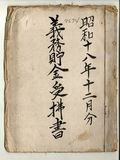 昭和十八年十二月分
義務貯金受拂書